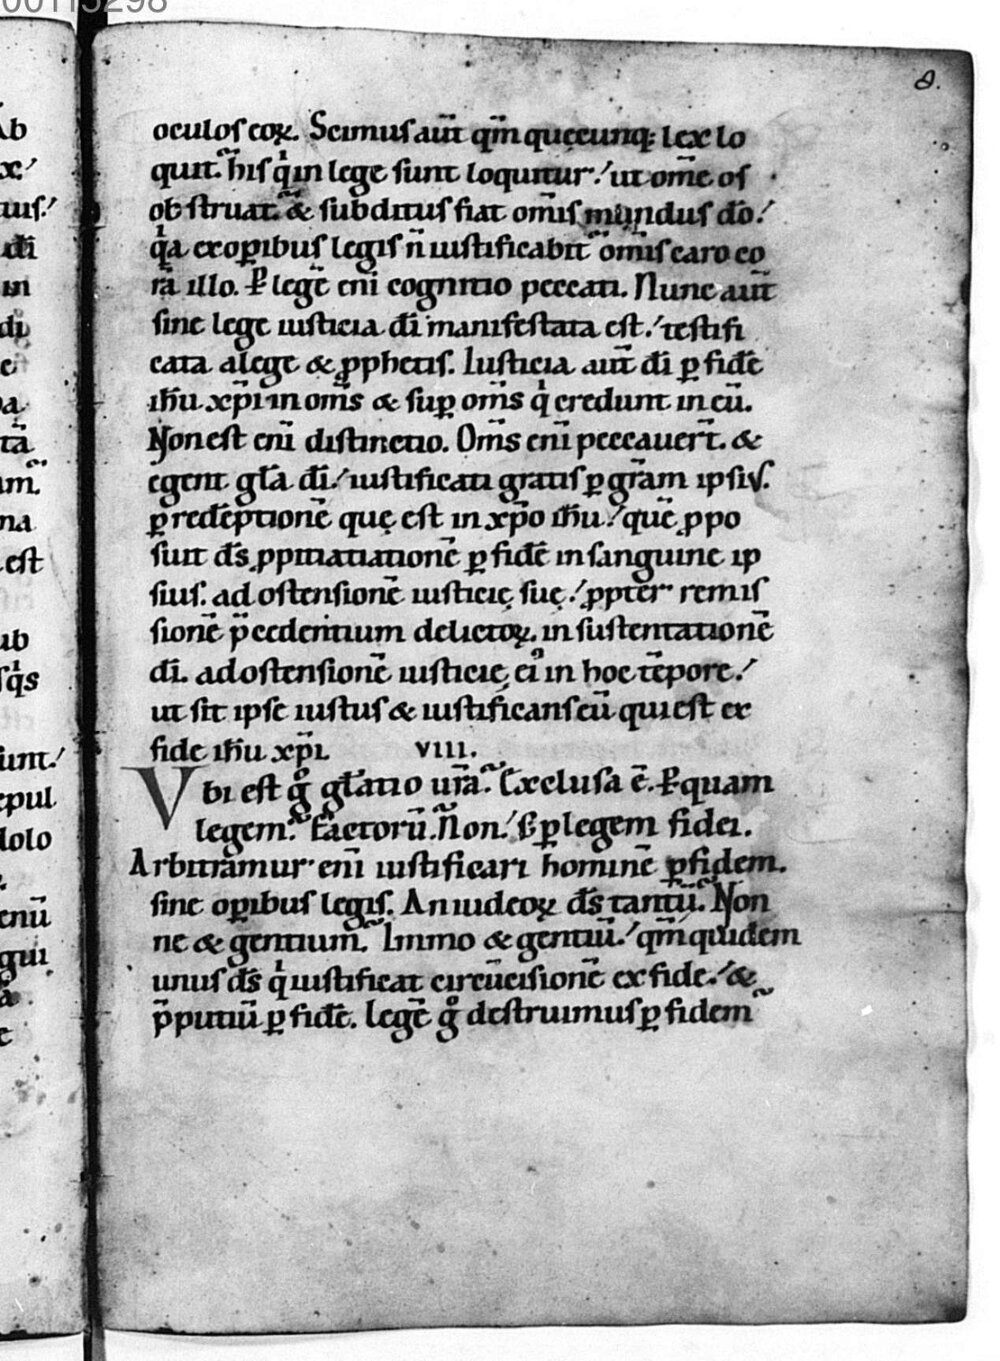 00113298
8.
oculoſ eoꝝ. Scimuſ aut̄ qm̄ quęcunq; lex lo
quit᷑. hiſ qͥ in lege ſunt loquitur! ut om̄e oſ
obſtruat᷑. & ſubdituſ fiat om̄iſ mundus d̄o!
qͥa ex oꝑibuſ legiſ n̄ iuſtificabit᷑ om̄iſ caro co
rā illo. Ꝑ legē eni cognitio peccati. Nunc aut̄
ſine lege iuſticia d̄i manifeſtata eſt! teſtifi
cata a lege & ꝓphetiſ. Iuſticia aut̄ d̄i ꝑ fidē
ih̄u xp̄i in om̄ſ & ſuꝑ om̄ſ qͥ credunt in eū.
Non eſt eni̅ diſtinctio. Om̄ſ eni̅ peccauer̄t. &
egent gl̄a d̄i! iuſtificati gratiſ ꝑ gr̄am ipſiuſ.
ꝑ redēptionē quę eſt in xp̄o ih̄u! quē ꝓpo
ſuit d̄ſ ꝓpitiatiationē ꝑ fidē in ſanguine ip
ſiuſ. ad oſtenſionē iuſticię ſuę! ꝓpter remiſ
ſionē p̄cedentium delictoꝝ. in ſuſtentationē
d̄i. ad oſtenſionē iuſticię ei᷒ in hoc tēpore!
ut ſit ipſe iuſtus & iuſtificanſ eū qui eſt ex
fide ih̄u xp̄i. VIII.
Vbi eſt gͦ gl̄atio ur̄a. Excluſa ē. Ꝑ quam
legem. Factorū. Non! S; ꝑ legem fidei.
Arbitramur eni̅ iuſtificari hominē ꝑ fidem.
ſine oꝑibuſ legiſ. An iudeoꝝ d̄ſ tantū. Non
ne & gentium. Immo & gentiū! qm̄ quidem
unuſ d̄ſ qͥ iuſtificat circūciſionē ex fide! &
p̄putiū ꝑ fidē. legē gͦ deſtruimuſ ꝑ fidem